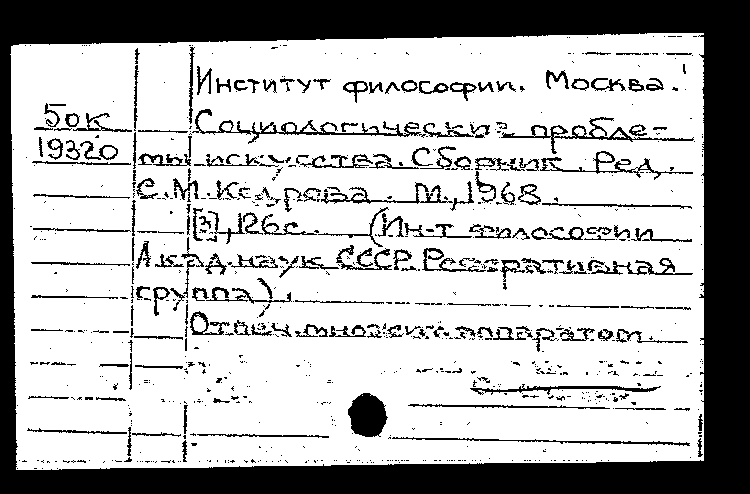 Институт философии. Москва.
50к
19320
Социологические пробле-
мы искусства. Сборник. Ред.
С.М.Кедрова. М., 1968.
[3], 126с. (Ин-т философии
Акад. наук СССР. Реферативная
группа).
Отпеч. множит. аппаратом.